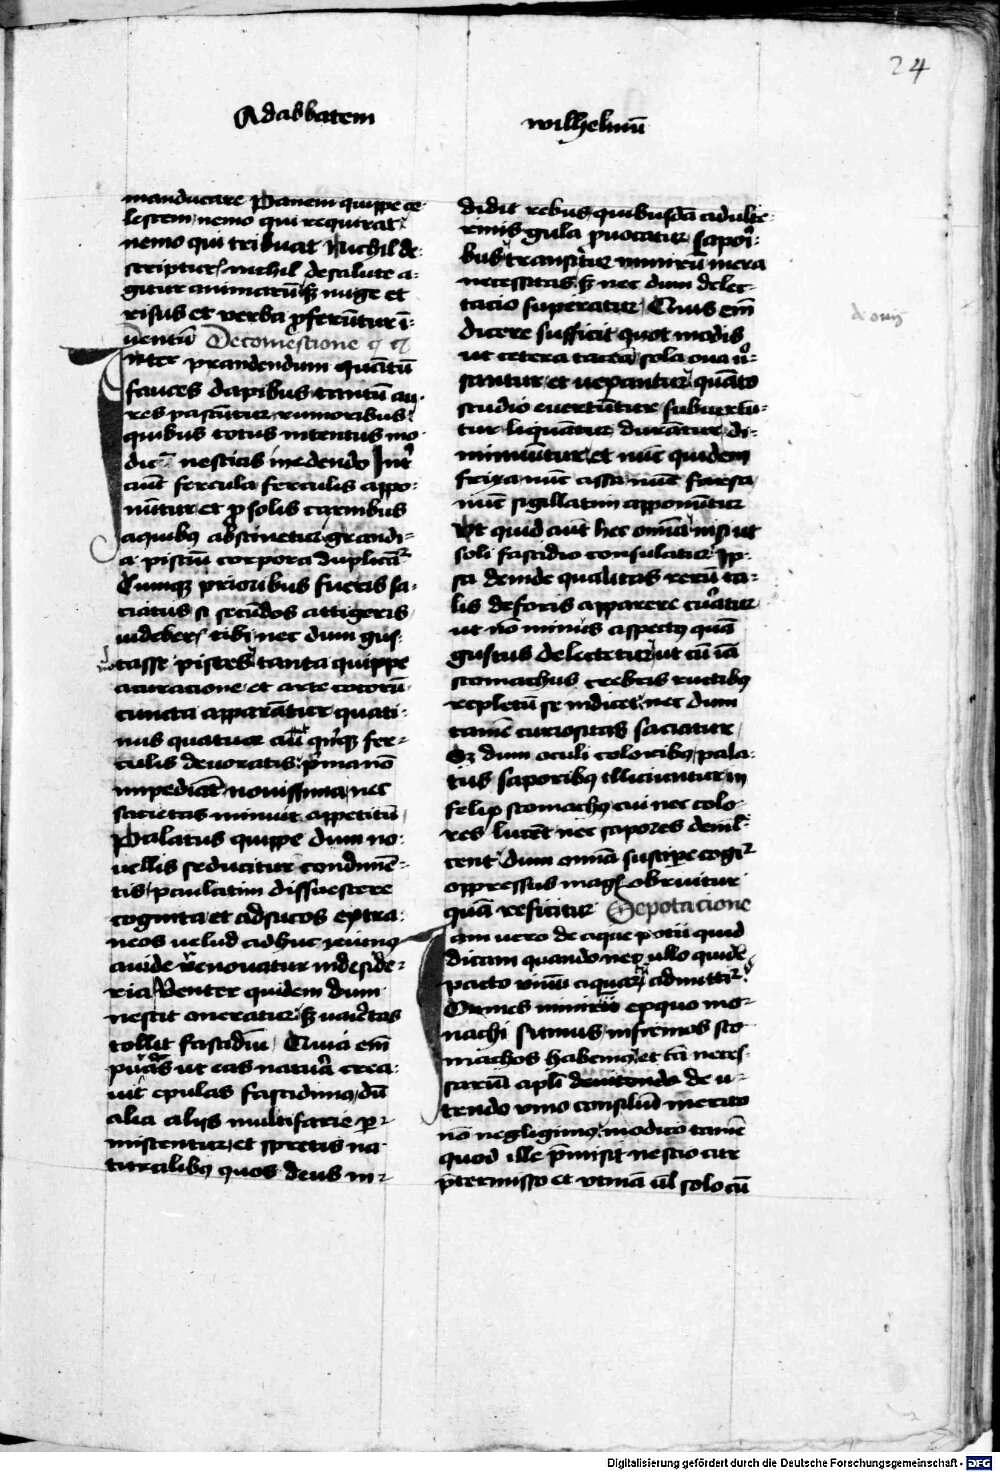 24
Ad abbatem wilhelmū
manducare Panem quippe ce-
lestem nemo qui requirat
nemo qui tribuat Nichil de
scripturis nichil de salute a-
gitur animarū sꝫ nuge et
risus et verba ꝓferūtur ī
ventū De comestione
Inter prandendum quātū
fauces dapibus tantū au-
res pascūtur rumoribus
quibus totus intentus mo-
dū nescias in edendo Int̄
eciā fercula ferculis appo-
nūtur et ꝓ solis carnibus
a quibꝰ abstinetur grandi-
a pisciū corpora duplicātᷣ
Cumqꝫ prioribus fueris sa-
ciatus si secūdos attigeris
videberis tibi nec dum gus-
tasse pisces tanta quippe
accuracione et arte cocorū
cuncta apparātur quati-
nus quatuor aut qⁱnqꝫ fer-
culis devoratis pⁱma nō
impediāt novissima nec
sacietas minuit appetitū
Palatus quippe dum no-
vellis seducitur condimē-
tis paulatim dissuescere
cognita et ad sucos extra-
neos velud adhuc ieiunꝰ
avide renovatur in deside-
ria Venter quidem dum
nescit oneratur sꝫ varietas
tollit fastidiū Quia em̄
puras ut eas natura crea-
vit epulas fastidimꝰ dū
alia alijs multifarie per-
miscentur et spretis na-
turalibꝰ quos deus in-
didit rebus quibusdā adulte-
rinis gula ꝓvocatur sapori-
bus transitur nimirū mera
necessitas sꝫ nec dum delec-
tacio superatur Quis em̄
dicere sufficit quot modis
ut cetera taceā sola ova v̄-
santur et vexantur quāto
studio evertūtur subvertū-
tur liquātur durātur di-
minuūtur et nūc quidem
frixa nūc assa nūc farsa
nūc sigillatim apponūtur
Ut quid aūt hec omīa nisi ut
soli fastidio consulatur Ip-
sa deinde qualitas rerū ta-
lis deforis apparere curatur
ut nō minus aspectꝰ quā
gustus delectetur ut cū iā
stomachus crebris ructibꝰ
repletū se indicet nec dum
tamē curiositas saciatur
Sꝫ dum oculi coloribꝰ pala-
tus saporibꝰ illiciuntur in
felix stomachꝰ cui nec colo-
res lucēt nec sapores demul-
cent dum omīa suscipe cogitᷣ
oppressus magis obruitur
quā reficitur De potacione
Iam vero de aque potu quid
dicam quando nec ullo quidē
pacto vinū aquatū admittitᷣ
Omnes nimirū ex quo mo-
nachi sumus infirmos sto-
machos habemꝰ et tā neces-
sariū apl̄i de vitando de u-
tendo vino consiliū merito
nō negligimꝰ modico tamē
quod ille p̄misit nescio cur
p̄termisso et utinā vl̄ solo cū
de ovis
Digitalisierung gefördert durch die Deutsche Forschungsgemeinschaft - DFG